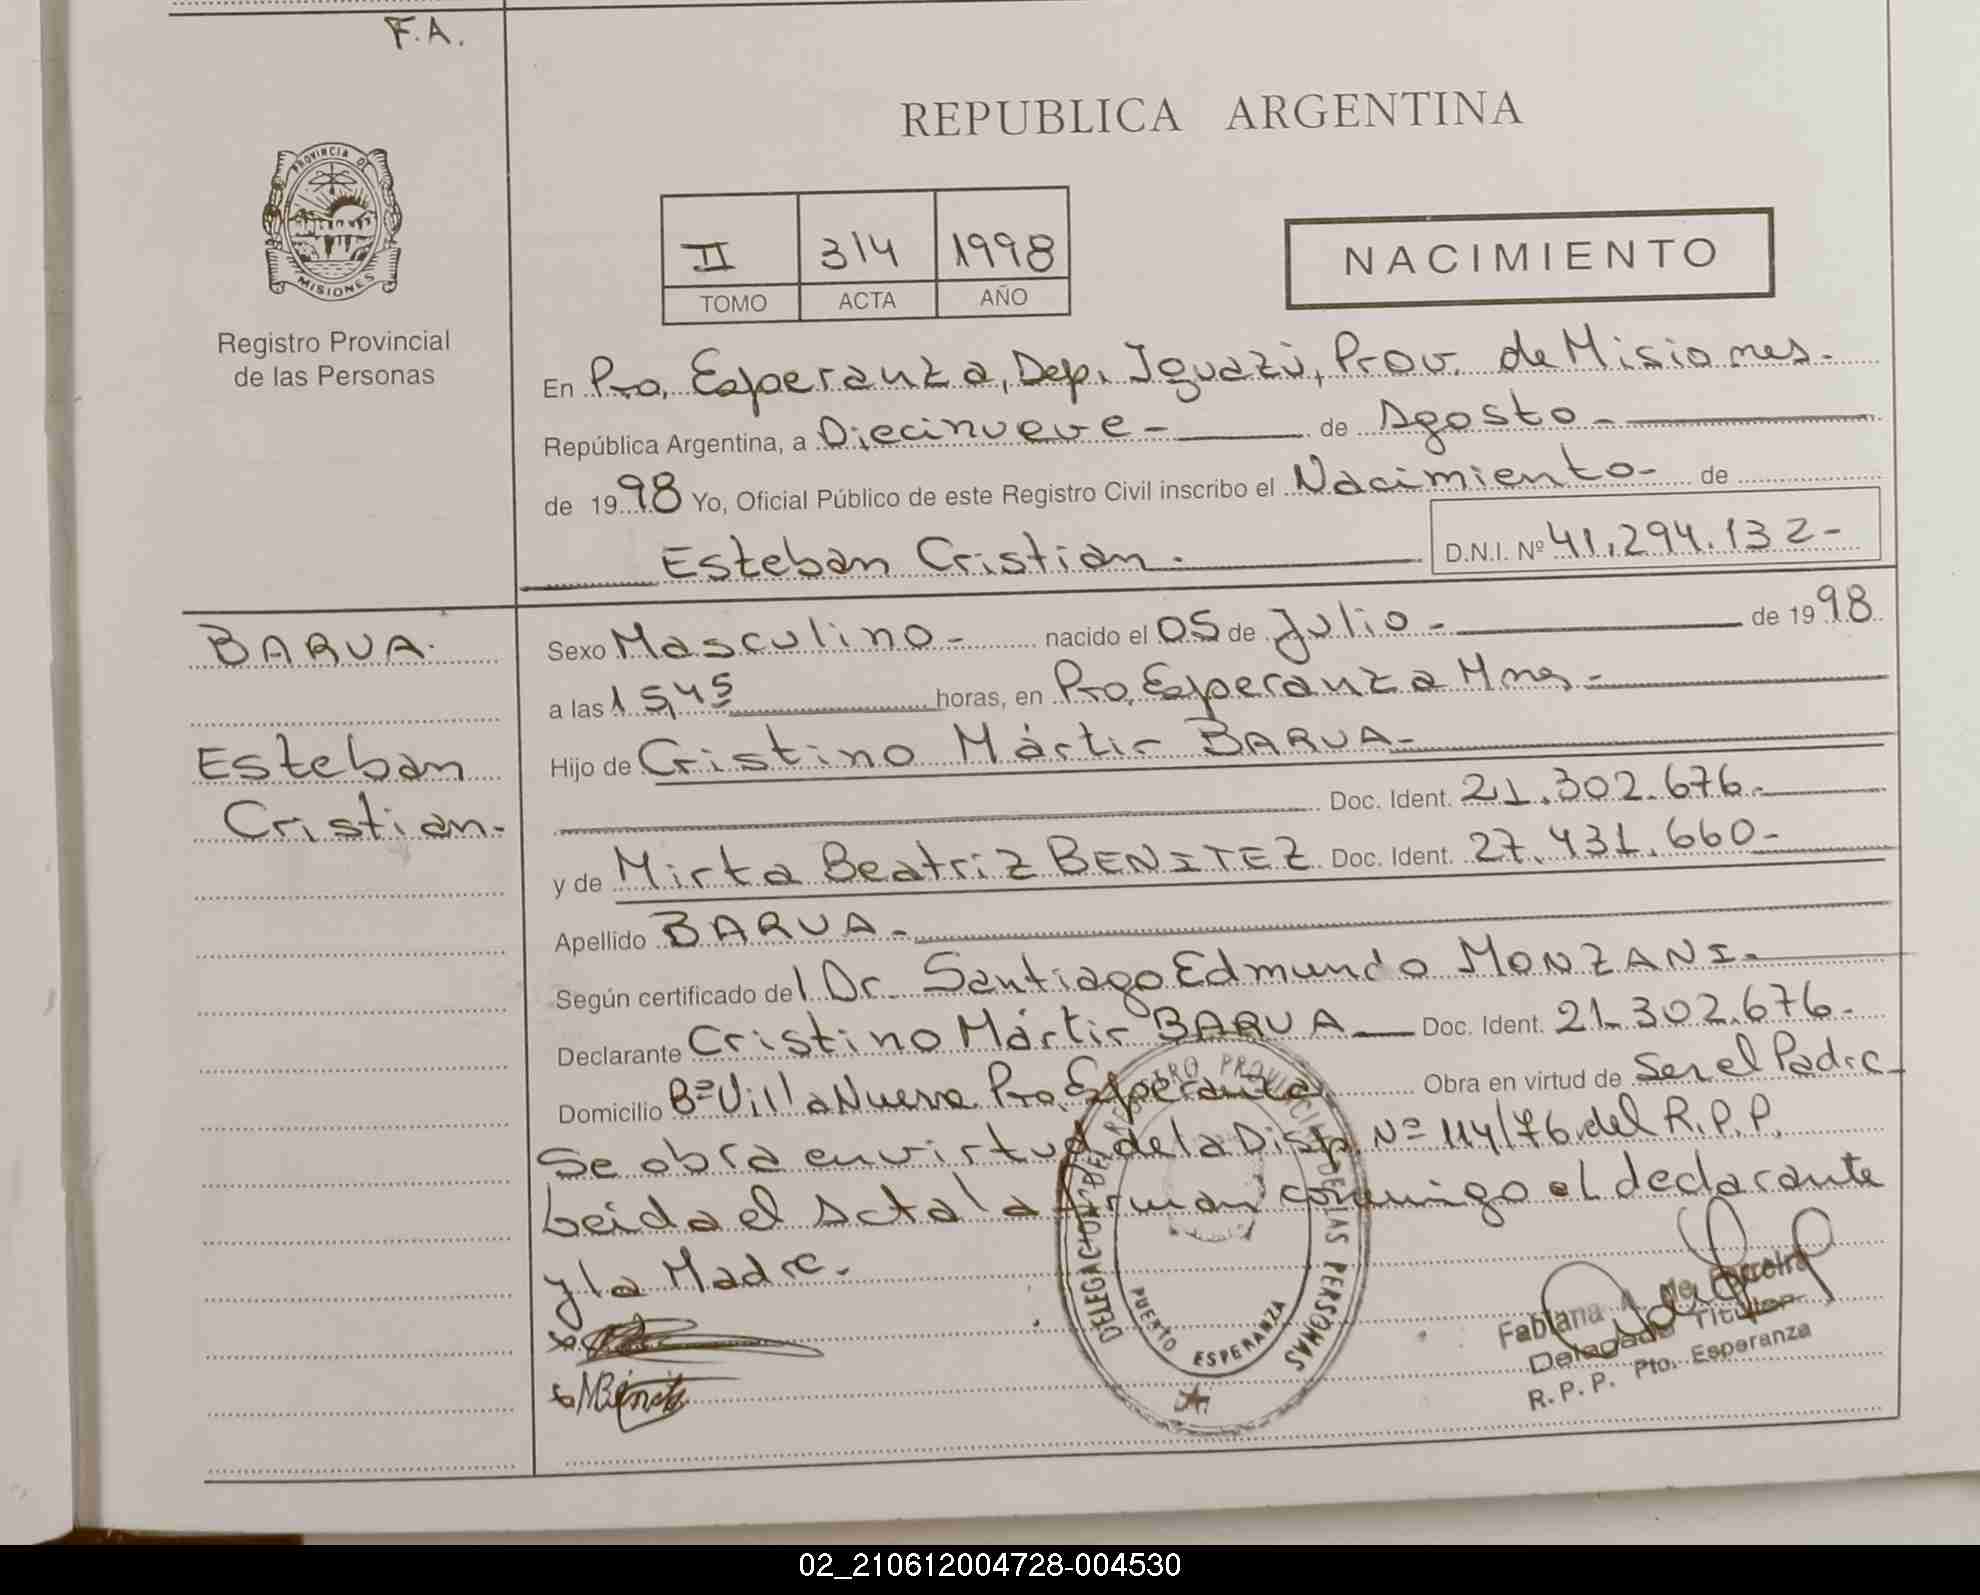 F.A.
REPUBLICA ARGENTINA
PROVINCIA DE
MISIONES
Registro Provincial
de las Personas
II 314 1998
TOMO ACTA AÑO
NACIMIENTO
En Pto. Esperanza, Dep. Iguazú, Prov. de Misiones.
República Argentina, a Diecinueve - de Agosto -
de 1998 Yo, Oficial Público de este Registro Civil inscribo el Nacimiento - de
Esteban Cristian. D.N.I. Nº 41.294.132-
BARUA.
Esteban
Cristian.
Sexo Masculino - nacido el 05 de Julio - de 1998
a las 15,45 horas, en Pto. Esperanza Mnes -
Hijo de Cristino Mártir BARUA -
Doc. Ident. 21.302.676.
y de Mirta Beatriz BENITEZ Doc. Ident. 27.431.660-
Apellido BARUA -
Según certificado del Dr. Santiago Edmundo MONZANI.
Declarante Cristino Mártir BARUA Doc. Ident. 21.302.676.
Domicilio Bº Villa Nueva Pto. Esperanza Obra en virtud de Ser el Padre
Se obra en virtud de la Disp. Nº 114/76 del R.P.P.
Leida el Acta la firman conmigo el declarante
y la Madre.
DELEGACION DEL REGISTRO PROVINCIAL DE LAS PERSONAS
PUERTO ESPERANZA
Fabiana A. de Ferreira
Delegada Titular
R.P.P. Pto. Esperanza
02_210612004728-004530